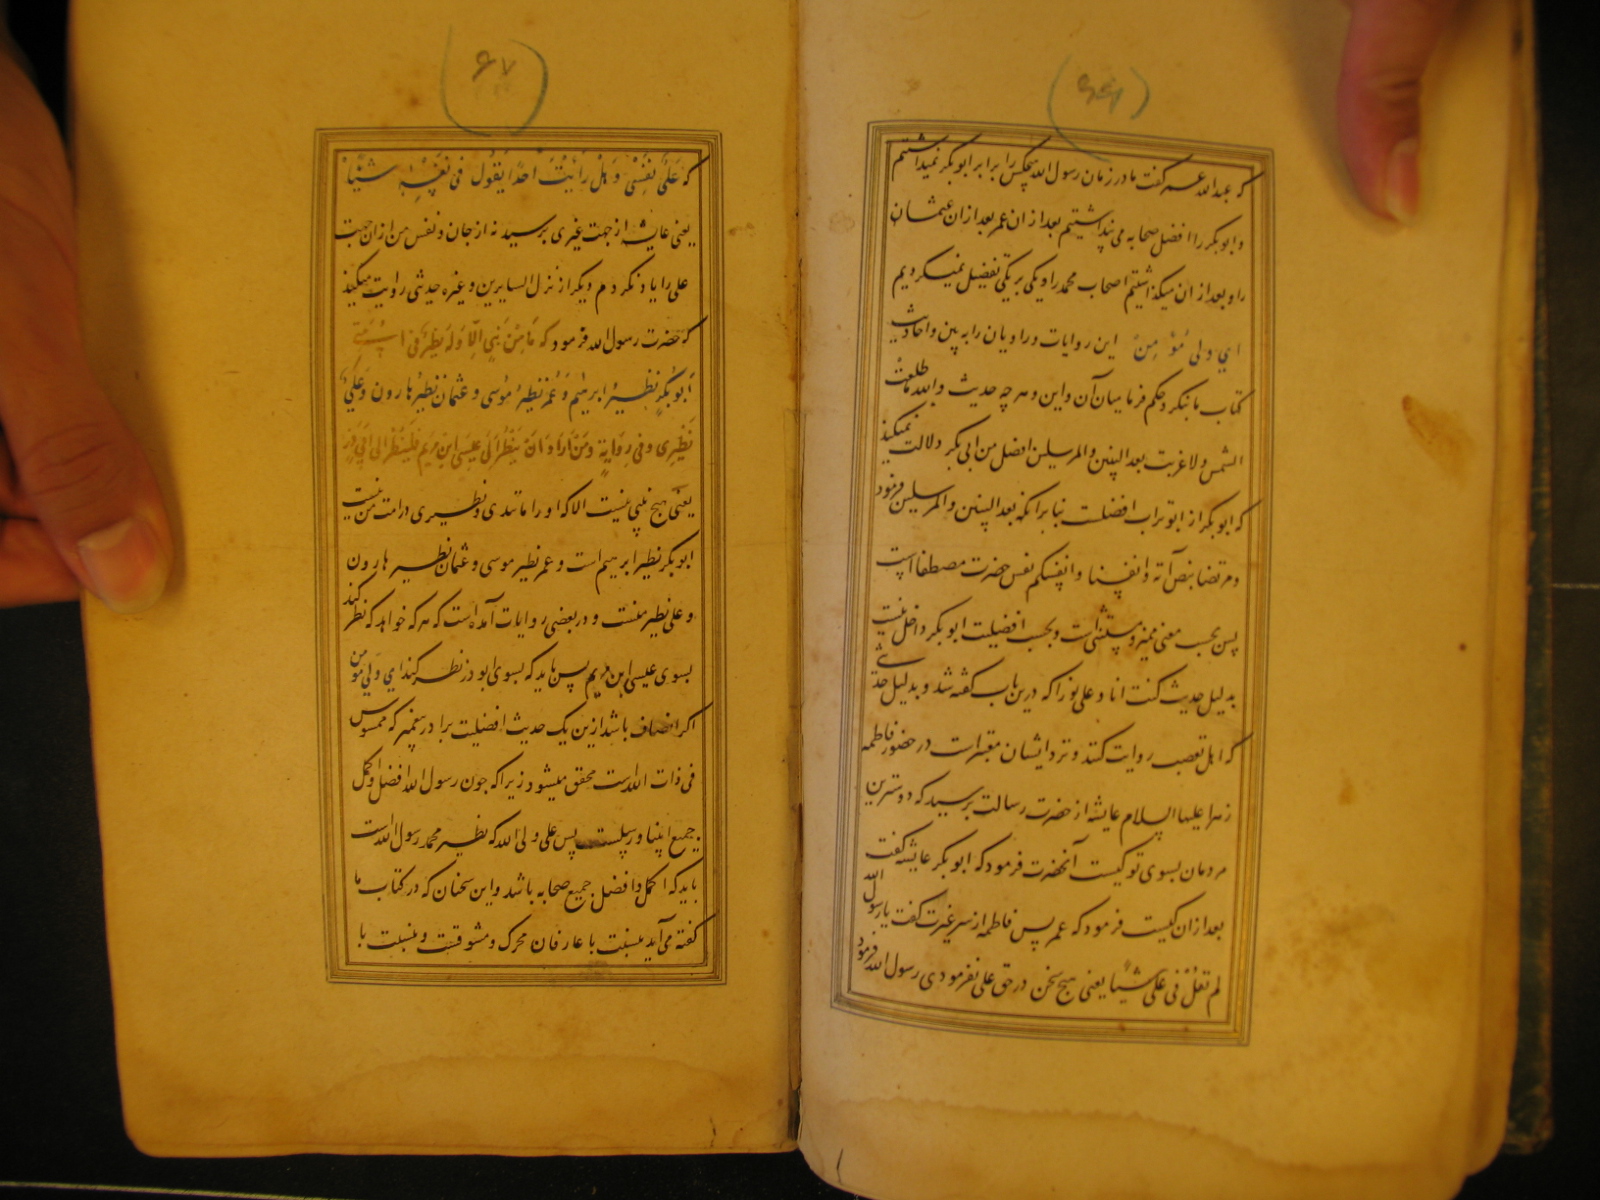 (۶۶)
که عبدالله عمر گفت ما در زمان رسول الله هیچکس را برابر ابوبکر نمیداشتیم
و ابوبکر را افضل صحابه می پنداشتیم بعد از ان عمر بعد از ان عثمان
را و بعد از ان میگذاشتیم اصحاب محمد را و یکی بر یکی تفضیل نمیکردیم
ای ولی مُؤمِن این روایات و راویان را به بین و احادیث
کتاب ما بنگر و حکم فرما میان آن و این و هر چه حدیث والله ما طلعت
الشمس ولا غربت بعد النبین والمرسلین افضل من ابی بکر دلالت نمیکند
که ابوبکر از ابوتراب افضلست بنا برانکه بعد النبیین والمرسلین فرمود
و مرتضا بنص آیه و انفسنا و انفسکم نفس حضرت مصطفا است
پس بحسب معنی ممیز و مستثنی است و بحسب افضیلت ابوبکر داخل نیست
بدلیل حدیث کنت انا و علی نورا که درین باب گفته شد و بدلیل حدیثی
که اهل تعصب روایت کنند و نزد ایشان معتبر است در حضور فاطمه
زهرا علیها السلام عایشه از حضرت رسالت پرسید که دوسترین
مردمان بسوی تو کیست آنحضرت فرمود که ابوبکر عایشه گفت
بعد از ان کیست فرمود که عمر پس فاطمه از سر غیرت گفت یا رسول الله
لم تقل فی علی شیئا یعنی هیچ سخن در حق علی نفرمودی رسول الله فرمود
(۶۷)
که عَلَیٌّ نَفْسِی وَ هَلْ رَاَیْتَ اَحَدًا یَقُولُ فی نَفْسِهِ شَیْئًا
یعنی عایشه از جهت غیری پرسید نه از جان و نفس من ازان جهت
علی را یاد نکردم و دیگر از نزل السایرین و غیره حدیثی روایت میکنند
که حضرت رسول الله فرمود که مَا مِنْ نَبِیٍ اِلّا وَلَهُ نَظِیرٌ فی اُمّتی
اَبُو بَکْرٍ نظیرُ ابراهیم وَ عُمَرُ نظیرُ مُوسی وَ عثمان نظیرُ هارون وَ عَلیٌّ
نَظِیری وفی رِوَایةٍ وَمَنْ اَرَادَ اَنْ یَنْظُرَ اِلَی عیسی ابنِ مریم فَلْیَنْظُرْ اِلی اَبی ذَر
یعنی هیچ نبی نیست الا که او را مانندی و نظیری در امت من نیست
ابوبکر نظیر ابراهیم است و عمر نظیر موسی و عثمان نظیر هارون
و علی نظیر منست و در بعضی روایات آمده است که هر که خواهد که نظر کند
بسوی عیسی ابن مریم پس باید که بسوی ابوذر نظر کند ای ولی مومن
اگر انصاف باشد ازین یک حدیث افضیلت برادر پیغمبر که ممسوس
فی ذات الله است محقق میشود زیرا که چون رسول الله افضل و اکمل
جمیع انبیا و رسلست پس علی ولی الله که نظیر محمد رسول الله است
باید که اکمل و افضل جمیع صحابه باشد و این سخنان که در کتاب ما
گفته می آید بنسبت با عارفان محرک و مشوقست و بنسبت با